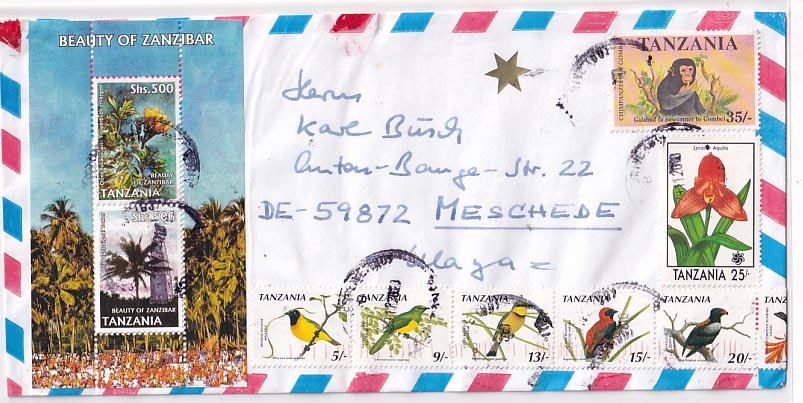 BEAUTY OF ZANZIBAR
Shs.500
BEAUTY
OF ZANZIBAR
TANZANIA
Shs.500
BEAUTY OF ZANZIBAR
TANZANIA
Herrn
Karl Büsch
Anton-Bange-Str. 22
DE-59872 MESCHEDE
Ulaya =
TANZANIA
CHIMPANZEES OF GOMBE
Galahad (a newcomer to Gombe)
35/-
Lycaste Aquila
TANZANIA 25/-
TANZANIA
5/-
TANZANIA
9/-
TANZANIA
13/-
TANZANIA
15/-
TANZANIA
20/-
TAN